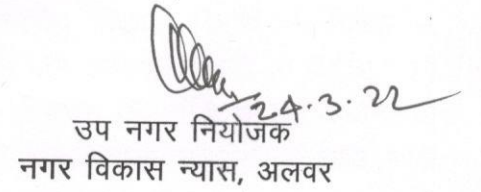 24.3.22
उप नगर नियोजक
नगर विकास न्यास, अलवर